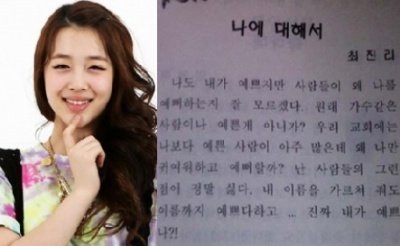 나에 대해서
최진리
나도 내가 예쁘지만 사람들이 왜 나를
예뻐하는지 잘 모르겠다.. 원래 가수같은
사람이나 예쁜게 아니가? 우리 교회에는
나보다 예쁜 사람이 아주 많은데 왜 나만
귀여워하고 예뻐할까? 난 사람들의 그런
점이 정말 싫다. 내 이름을 가르쳐 줘도
이름까지 예쁘다라고 .. 진짜 내가 예쁘
나?!